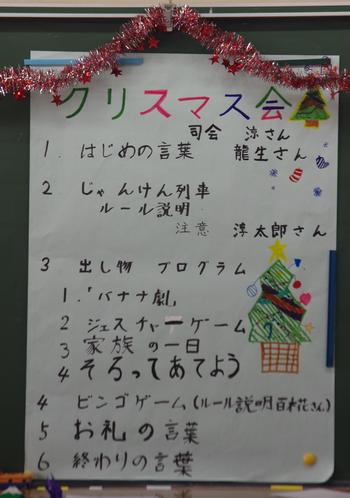 クリスマス会
司会 涼さん
1. はじめの言葉 龍生さん
2 じゃんけん列車
ルール説明
注意 淳太郎さん
3 出し物 プログラム
1.「バナナ劇」
2 ジェスチャーゲーム
3 家族の一日
4 そろってあてよう
4 ビンゴゲーム(ルール説明百花さん)
5 お礼の言葉
6 終わりの言葉